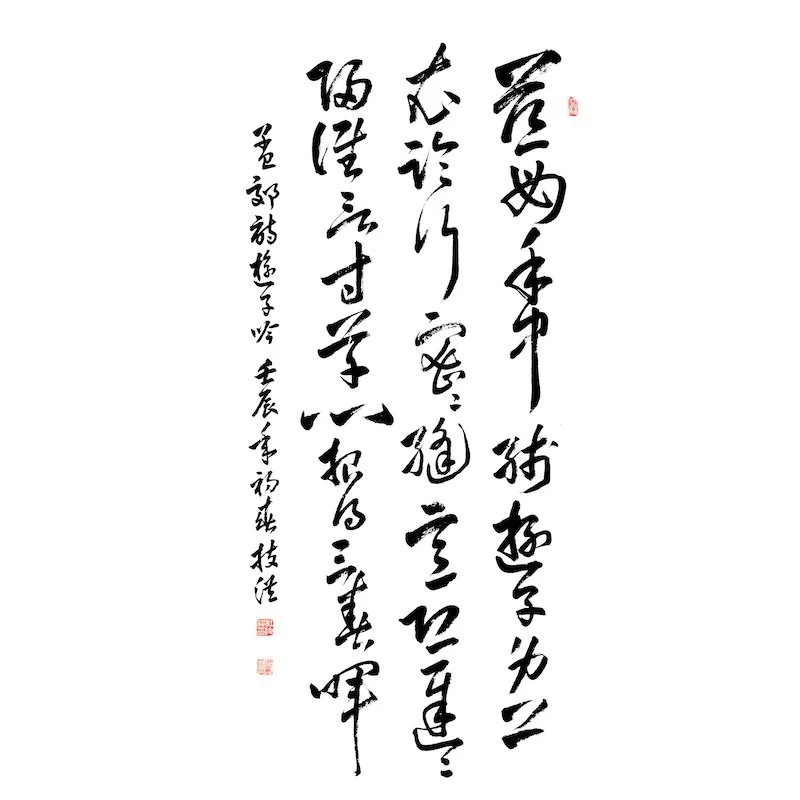 慈母手中綫遊子身上
衣臨行密〻縫意恐遲〻
歸誰言寸草心報得三春暉
孟郊詩遊子吟 壬辰年初春